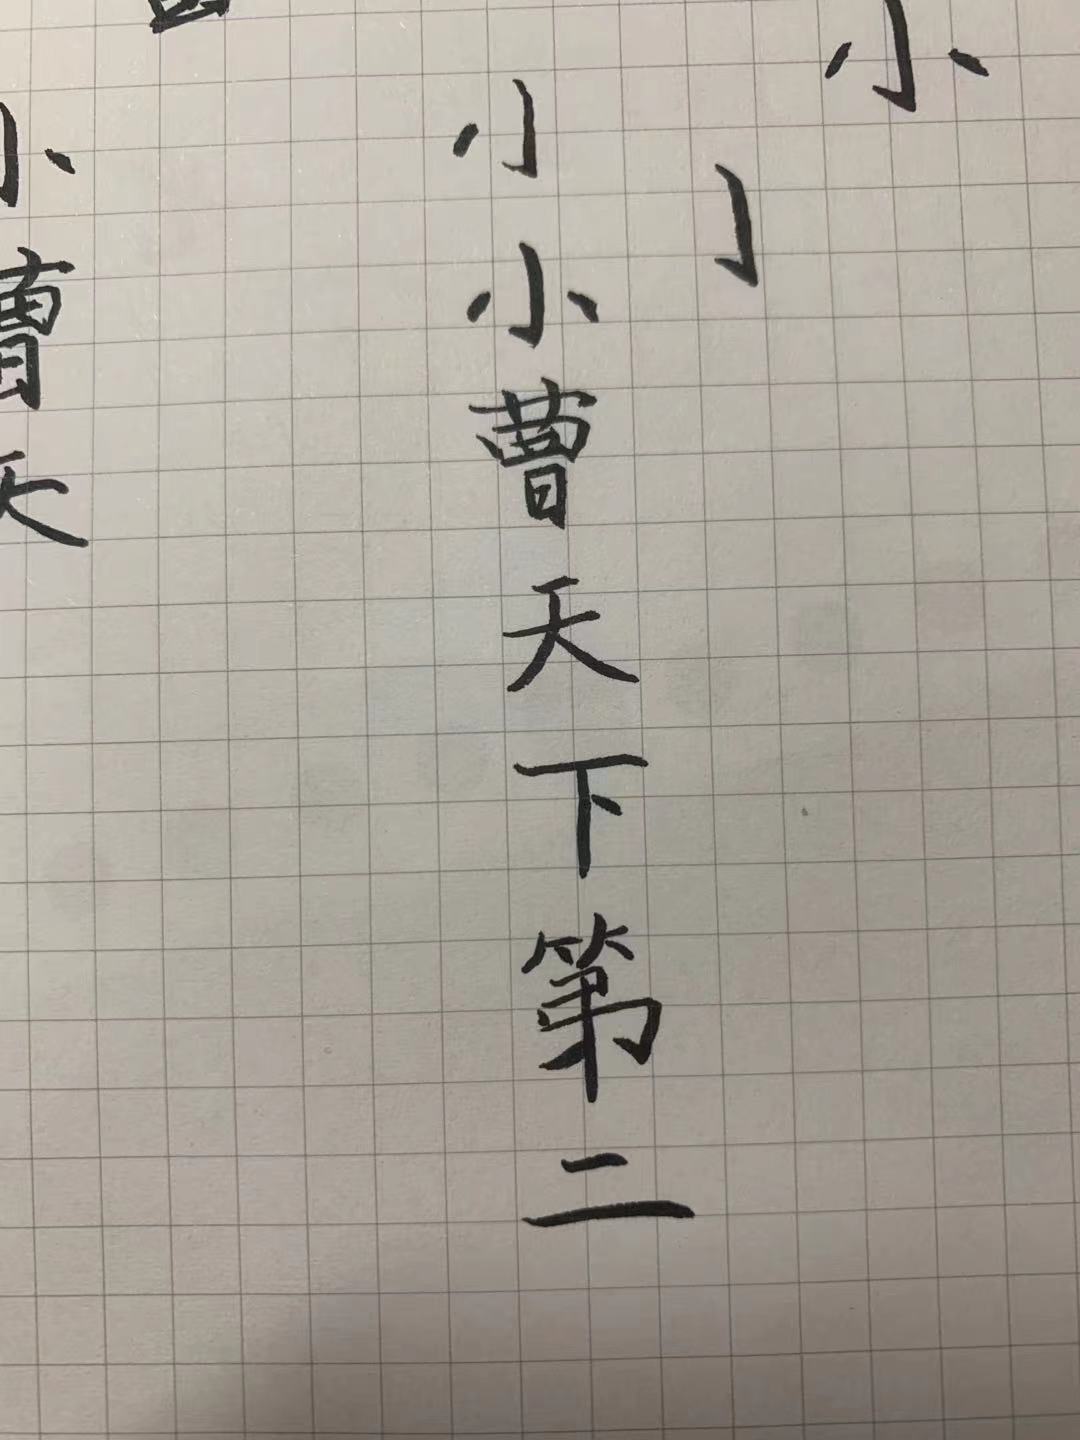 小
小
小曹天下第二
小曹天